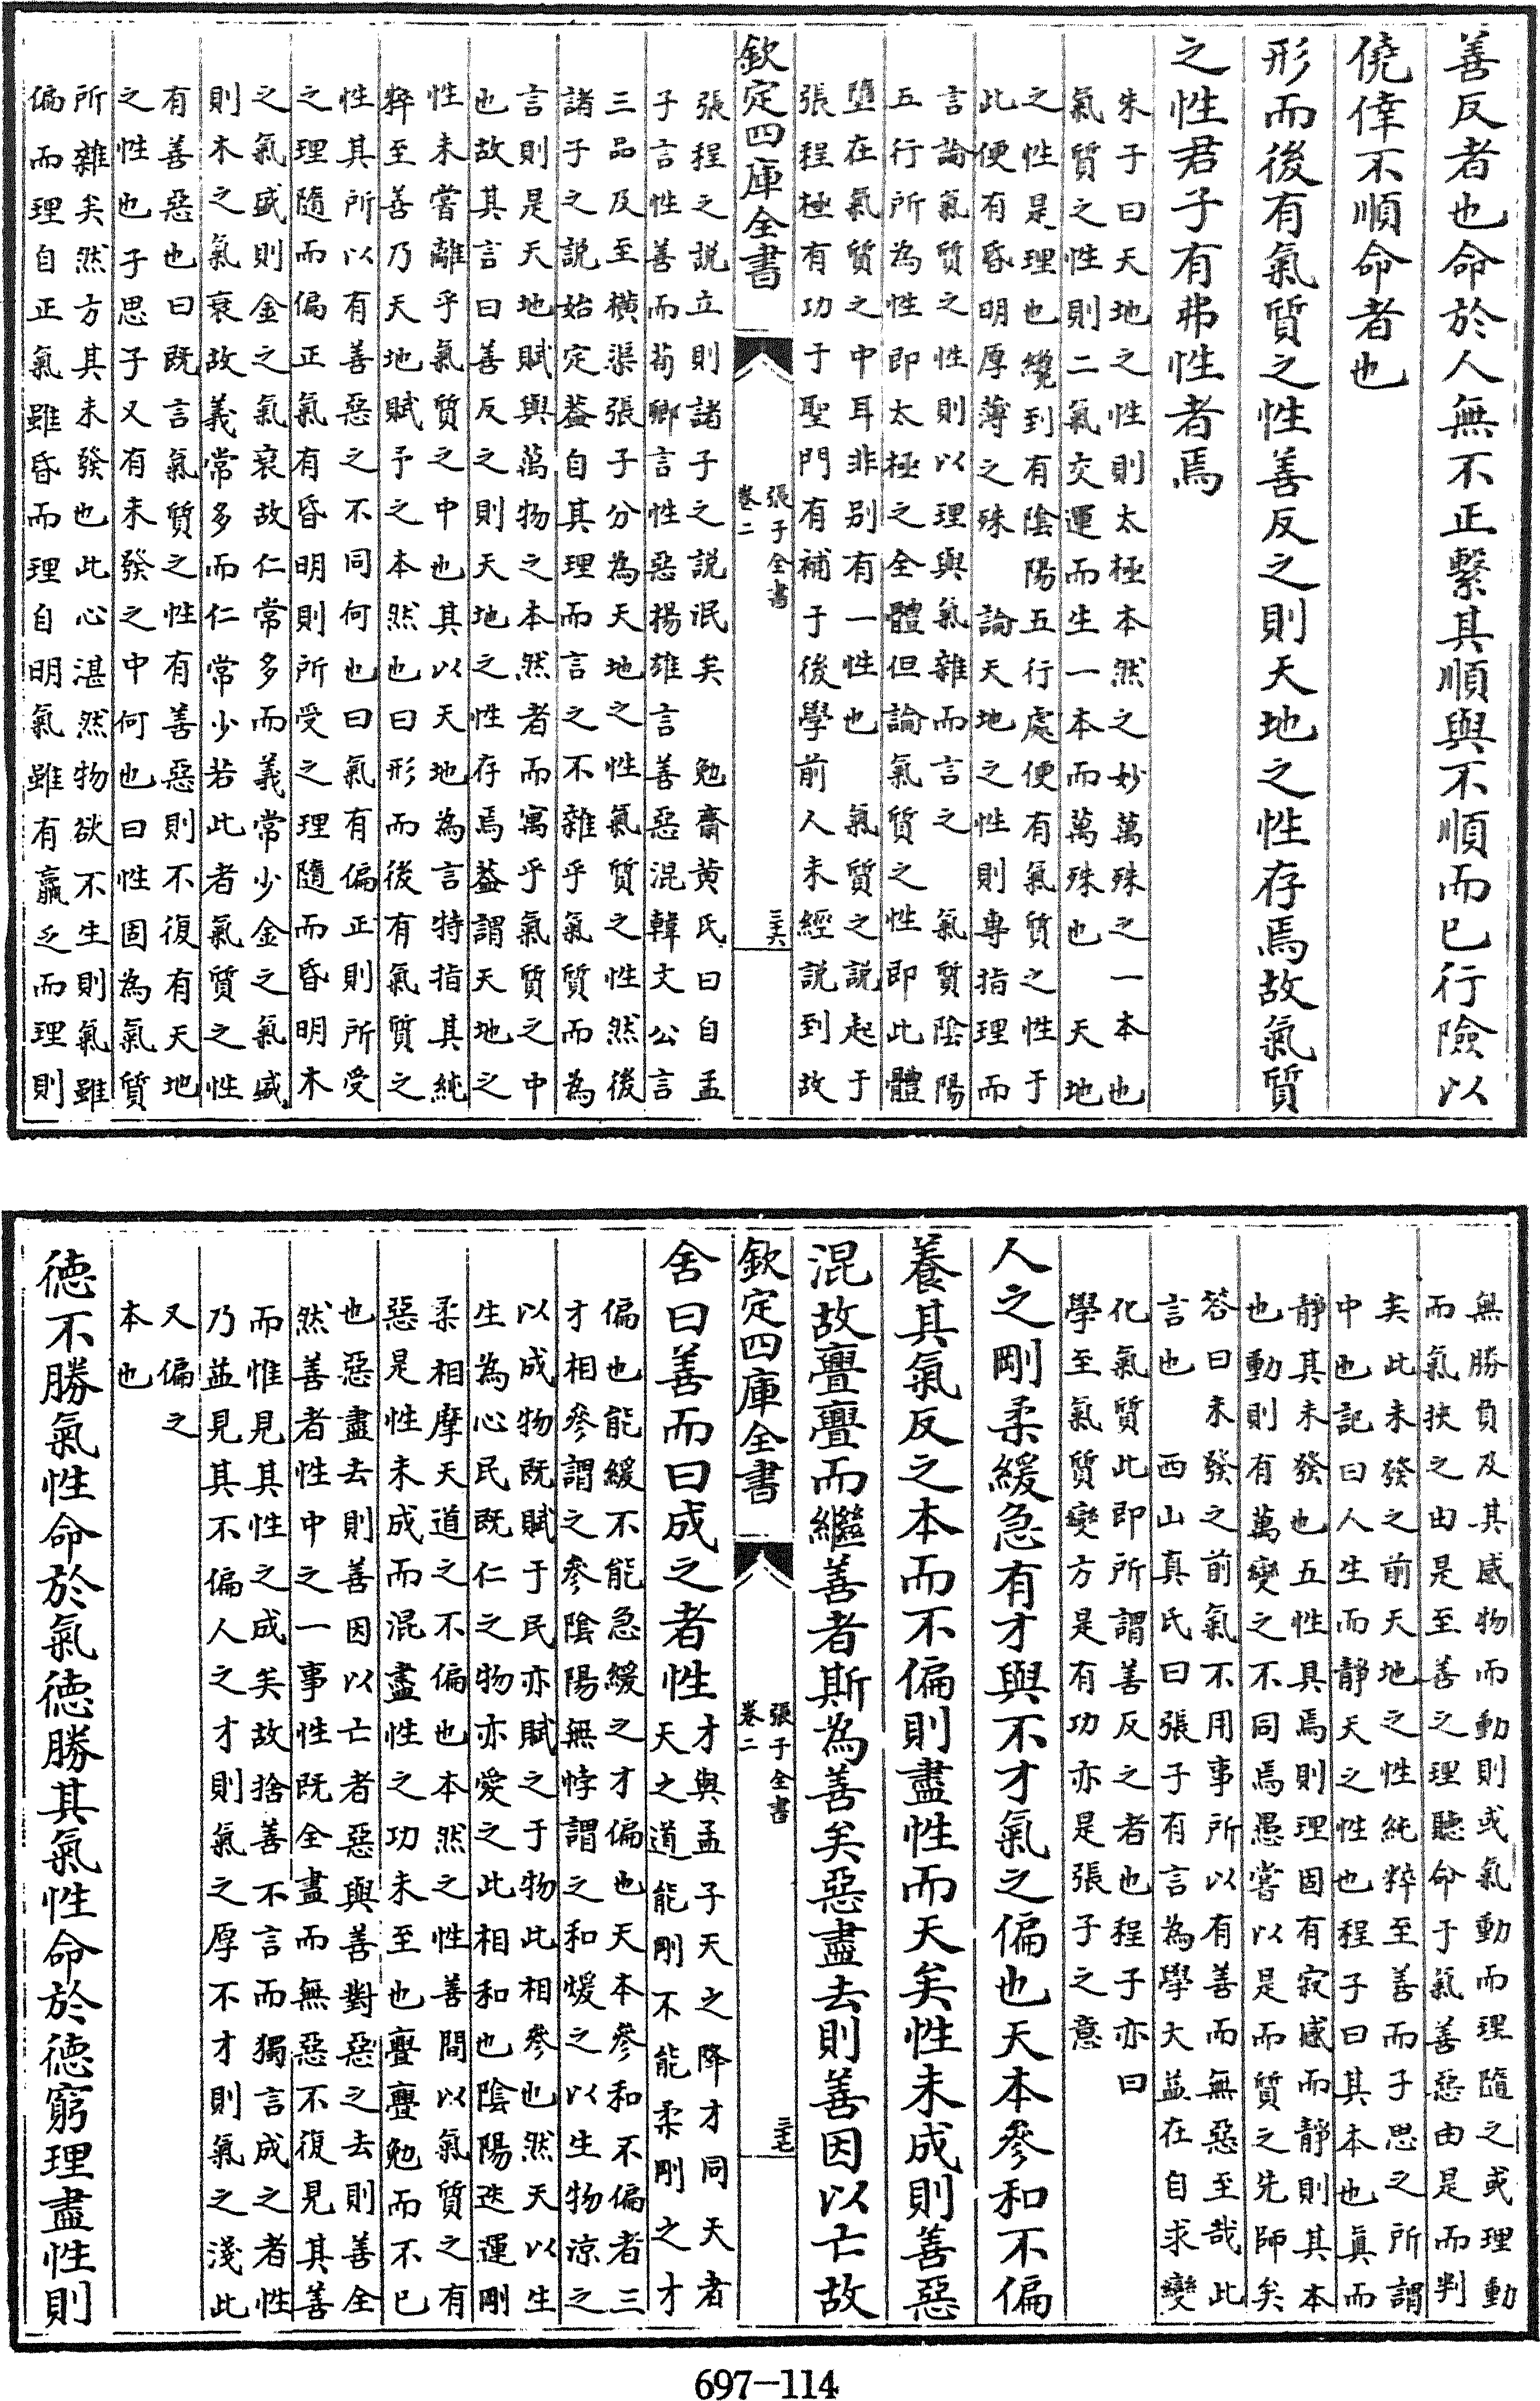 善反者也命於人無不正繫其順與不順而已行險以
僥倖不順命者也
形而後有氣質之性善反之則天地之性存焉故氣質
之性君子有弗性者焉
朱子曰天地之性則太極本然之妙萬殊之一本也
氣質之性則二氣交運而生一本而萬殊也　天地
之性是理也纔到有陰陽五行處便有氣質之性于
此便有昏明厚薄之殊　論天地之性則專指理而
言論氣質之性則以理與氣雜而言之　氣質陰陽
五行所為性即太極之全體但論氣質之性即此體
墮在氣質之中耳非别有一性也　氣質之説起于
張程極有功于聖門有補于後學前人未經説到故
欽定四庫全書
張子全書
卷二
三六
張程之説立則諸子之説泯矣　勉齋黄氏曰自孟
子言性善而荀卿言性惡揚雄言善惡混韓文公言
三品及至橫渠張子分為天地之性氣質之性然後
諸子之説始定葢自其理而言之不雜乎氣質而為
言則是天地賦與萬物之本然者而寓乎氣質之中
也故其言曰善反之則天地之性存焉葢謂天地之
性未嘗離乎氣質之中也其以天地為言特指其純
粹至善乃天地賦予之本然也曰形而後有氣質之
性其所以有善惡之不同何也曰氣有偏正則所受
之理隨而偏正氣有昏明則所受之理隨而昏明木
之氣盛則金之氣衰故仁常多而義常少金之氣盛
則木之氣衰故義常多而仁常少若此者氣質之性
有善惡也曰既言氣質之性有善惡則不復有天地
之性也子思子又有未發之中何也曰性固為氣質
所雜矣然方其未發也此心湛然物欲不生則氣雖
偏而理自正氣雖昏而理自明氣雖有羸乏而理則
無勝負及其感物而動則或氣動而理隨之或理動
而氣挾之由是至善之理聽命于氣善惡由是而判
矣此未發之前天地之性純粹至善而子思之所謂
中也記曰人生而靜天之性也程子曰其本也真而
靜其未發也五性具焉則理固有寂感而靜則其本
也動則有萬變之不同焉愚嘗以是而質之先師矣
答曰未發之前氣不用事所以有善而無惡至哉此
言也　西山真氏曰張子有言為學大益在自求變
化氣質此即所謂善反之者也程子亦曰
學至氣質變方是有功亦是張子之意
人之剛柔緩急有才與不才氣之偏也天本參和不偏
養其氣反之本而不偏則盡性而天矣性未成則善惡
混故亹亹而繼善者斯為善矣惡盡去則善因以亡故
欽定四庫全書
張子全書
卷二
三七
舍曰善而曰成之者性
才與孟子天之降才同天者
天之道能剛不能柔剛之才
偏也能緩不能急緩之才偏也天本參和不偏者三
才相參謂之參陰陽無悖謂之和煖之以生物凉之
以成物既賦于民亦賦之于物此相參也然天以生
生為心民既仁之物亦愛之此相和也陰陽迭運剛
柔相摩天道之不偏也本然之性善間以氣質之有
惡是性未成而混盡性之功未至也亹亹勉而不已
也惡盡去則善因以亡者惡與善對惡之去則善全
然善者性中之一事性既全盡而無惡不復見其善
而惟見其性之成矣故捨善不言而獨言成之者性
乃益見其不偏人之才則氣之厚不才則氣之淺此
又偏之
本也
德不勝氣性命於氣德勝其氣性命於德窮理盡性則
697-114